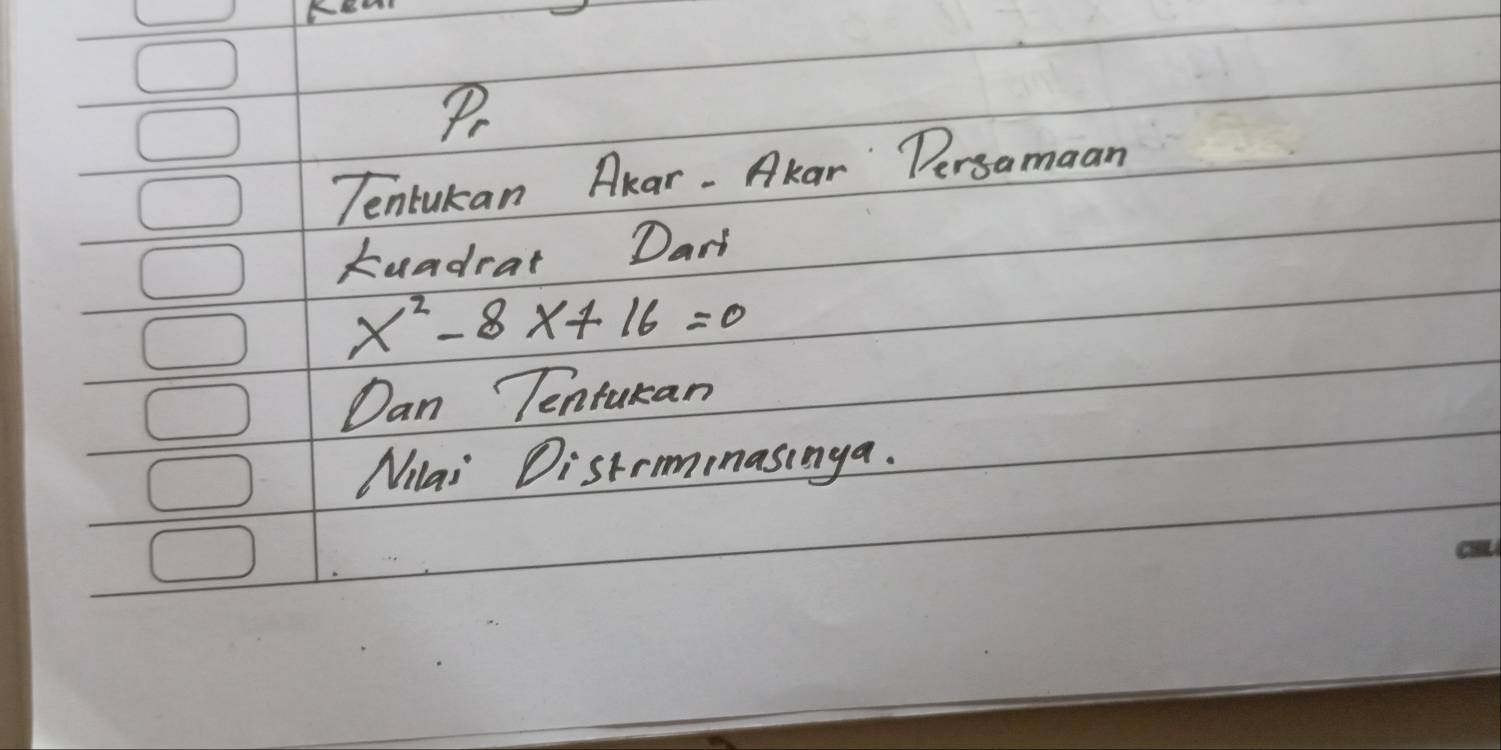 Pr
Tentukan Akar - Akar Persamaan
kuadrat Dari
x² - 8x + 16 = 0
Dan Tentukan
Nilai Distrminasinya.